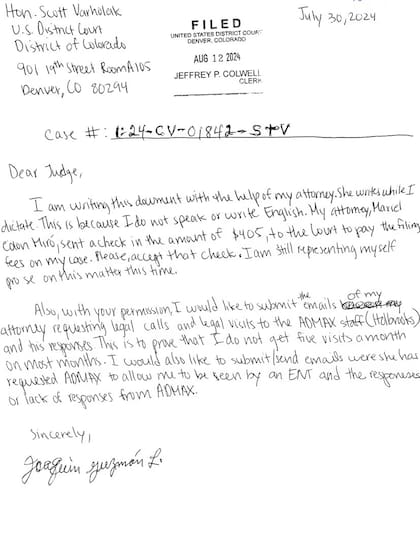 Hon. Scott Varholak
July 30, 2024
U.S. District Court
District of Colorado
901 19th Street Room A105
Denver, CO 80294
FILED
UNITED STATES DISTRICT COURT
DENVER, COLORADO
AUG 12 2024
JEFFREY P. COLWELL
CLERK
Case #: 1:24-CV-01842-STV
Dear Judge,
I am writing this document with the help of my attorney. She writes while I
dictate. This is because I do not speak or write English. My attorney, Mariel
Colon Miró, sent a check in the amount of $405, to the Court to pay the filing
fees on my case. Please, accept that check. I am still representing myself
pro se on this matter this time.
Also, with your permission, I would like to submit the emails of my
attorney requesting legal calls and legal visits to the ADMAX staff (Holbrooks)
and his responses. This is to prove that I do not get five visits a month
on most months. I would also like to submit/send emails were she has
requested ADMAX to allow me to be seen by an ENT and the responses
or lack of responses from ADMAX.
Sincerely,
Joaquin Guzmán L.